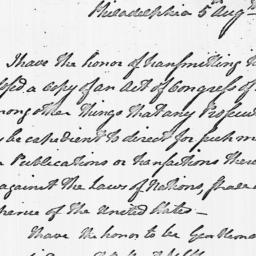 Philadelphia 5th Aug
I have the honor of transmitting
a copy of an Act of Congress of
among other things that any
be expedient to direct for such
Publications or transactions
against the Laws of Nations, shall
of the United States —
I have the honor to be Gentlemen